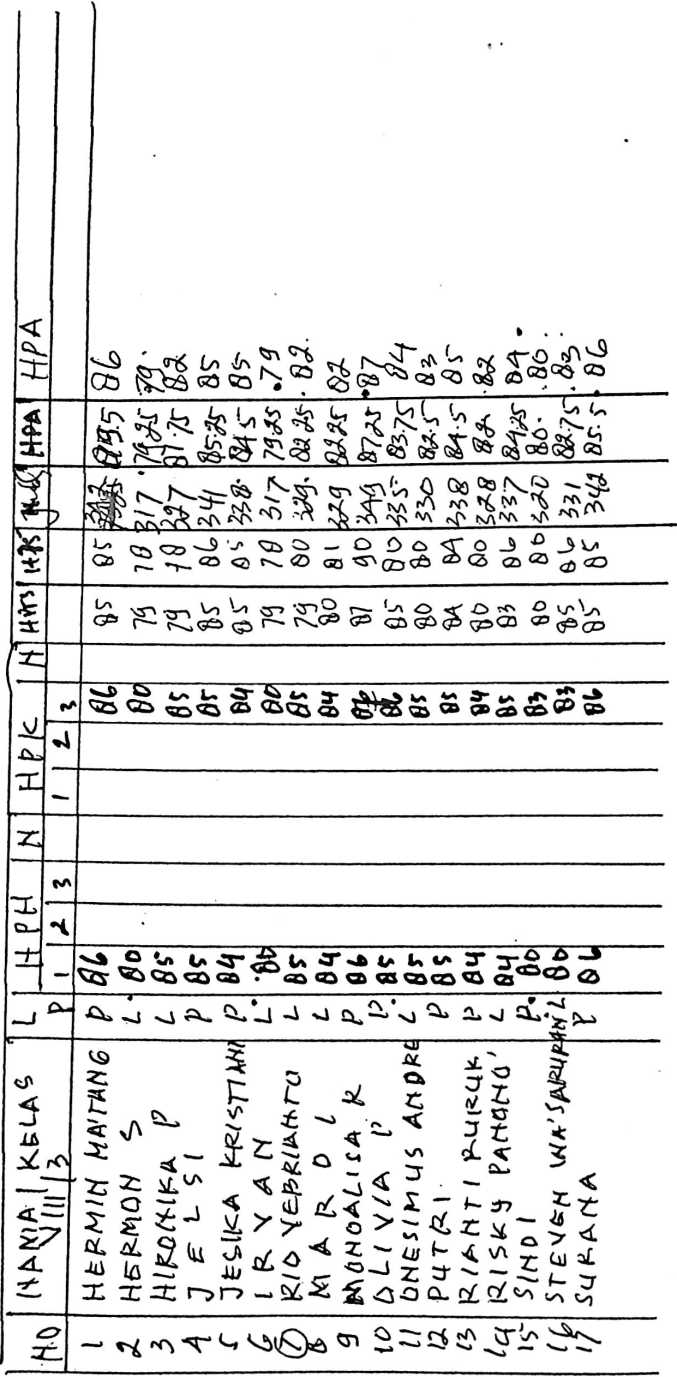 NO NAMA / KELAS VIII/3 L/P HPH 1 2 3 N HPK 1 2 3 N HTS HAS Jml HPA HPA
1 HERMIN MAITANG P 86 86 85 85 86
2 HERMON S L. 80 80 79 78 317 79.25 79.
3 HIRONIKA P L 85 85 79 78 327 81.75 82
4 JELSI P 85 85 85 86 341 85.25 85
5 JESIKA KRISTIANI P. 84 84 85 85 338. 84.5 85
6 IRYAN L. 80 80 79 78 317 79.25 .79
7 RIO YEBRIANTO L 85 85 79 80 329. 82.25. 82.
8 MAROL L 84 84 80 81 329 82.25 82
9 MONOALISA R P 86 87 90 349 87.25 .87
10 OLIVIA P P. 85 86 85 80 335 83.75 84
11 ONESIMUS ANDRE L. 85 85 80 80 330 82.5 83
12 PUTRI P 85 85 84 84 338 84.5 85
13 RIANTI RURUK P 84 84 80 80 328 82. .82
14 RISKY PANGNO' L 84 85 83 86 337 84.25 84
15 SINDI P. 80 83 80 80 320 80. .80.
16 STEVEN WA'SARURAN L 80 83 85 86 331 82.75 .83
17 SURANA P 86 86 85 85 342 85.5 .86